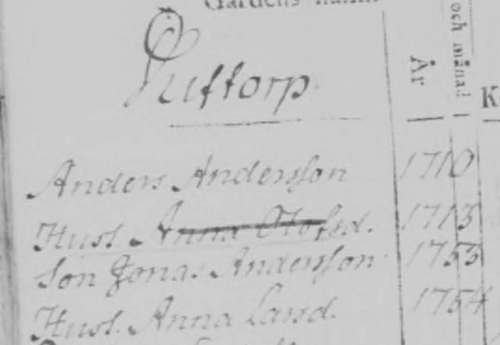 Gårdens namn
och månad
År
K
Anders Andersson 1710
Hust. Anna Olofsd. 1713
Son Jonas Andersson 1753
Hust. Anna Larsd. 1754